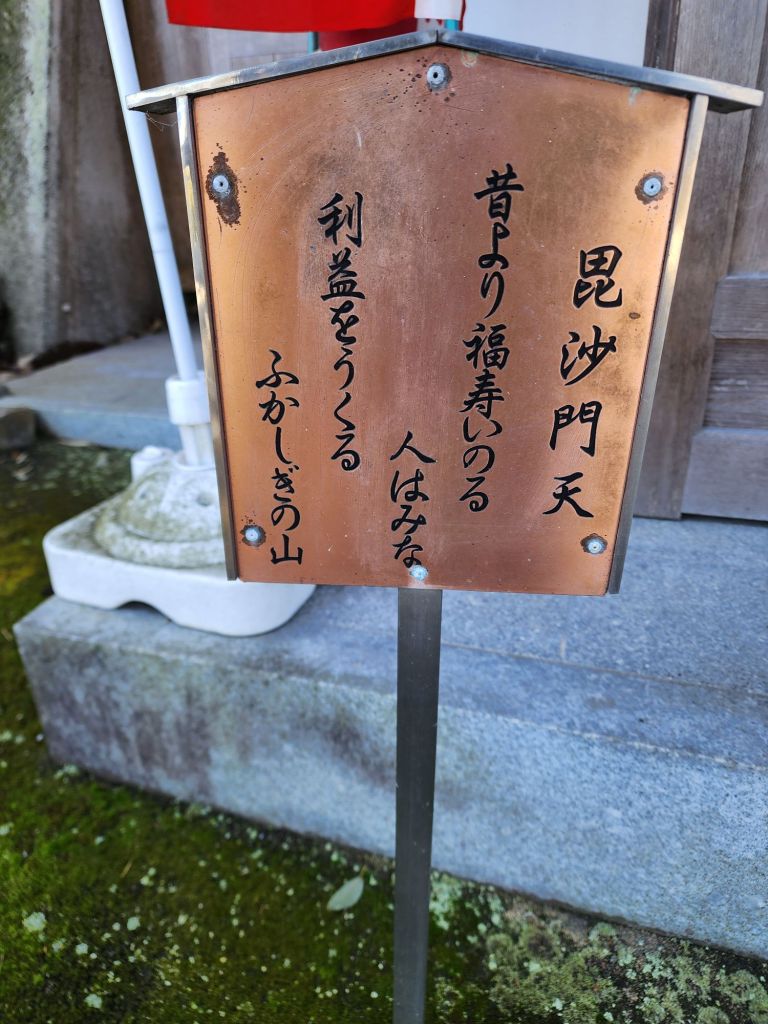 毘沙門天
昔より福寿いのる
人はみな
利益をうくる
ふかしぎの山